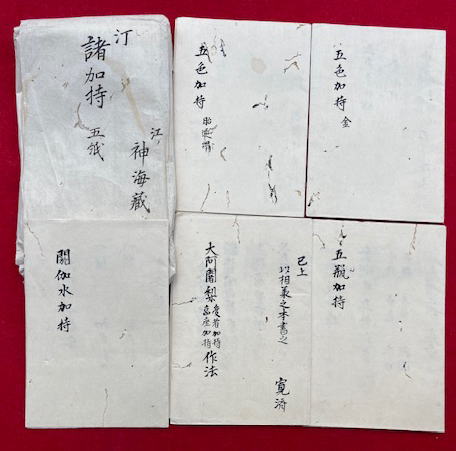 汀
諸加持
江
神海蔵
五色加持
五色加持 金
閼伽水加持
已上
以相兼之本書之
寛済
大阿闍梨
加持
高座加持
作法
五瓶加持